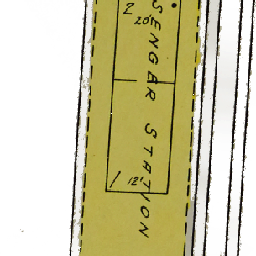 2
20'
SENGAR STATION
1
12'